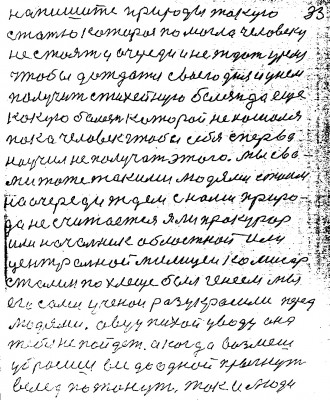 напишите природы такую 33
статью которая помогла человеку
не стоят у очереди и не ждат у ней
чтобы дождатся своего дня и у нем
получит стихейную болезн да еще
какую болезн которой не
пока человек чтобы себя сперва
научил не получат этого. мы с ва
ми тоже такими людями стоим
на очереди ждем с нами приро-
да не считается я ли прокурор
или началник областной или
централной милицеи комисар
сталин по хлеще был генеем мы
его сами ученои разукрасили пред
людями. а
тебе не пойдет. а когда возмеш
убросиш ей до одной прыгнут
вслед потонут. так и люди